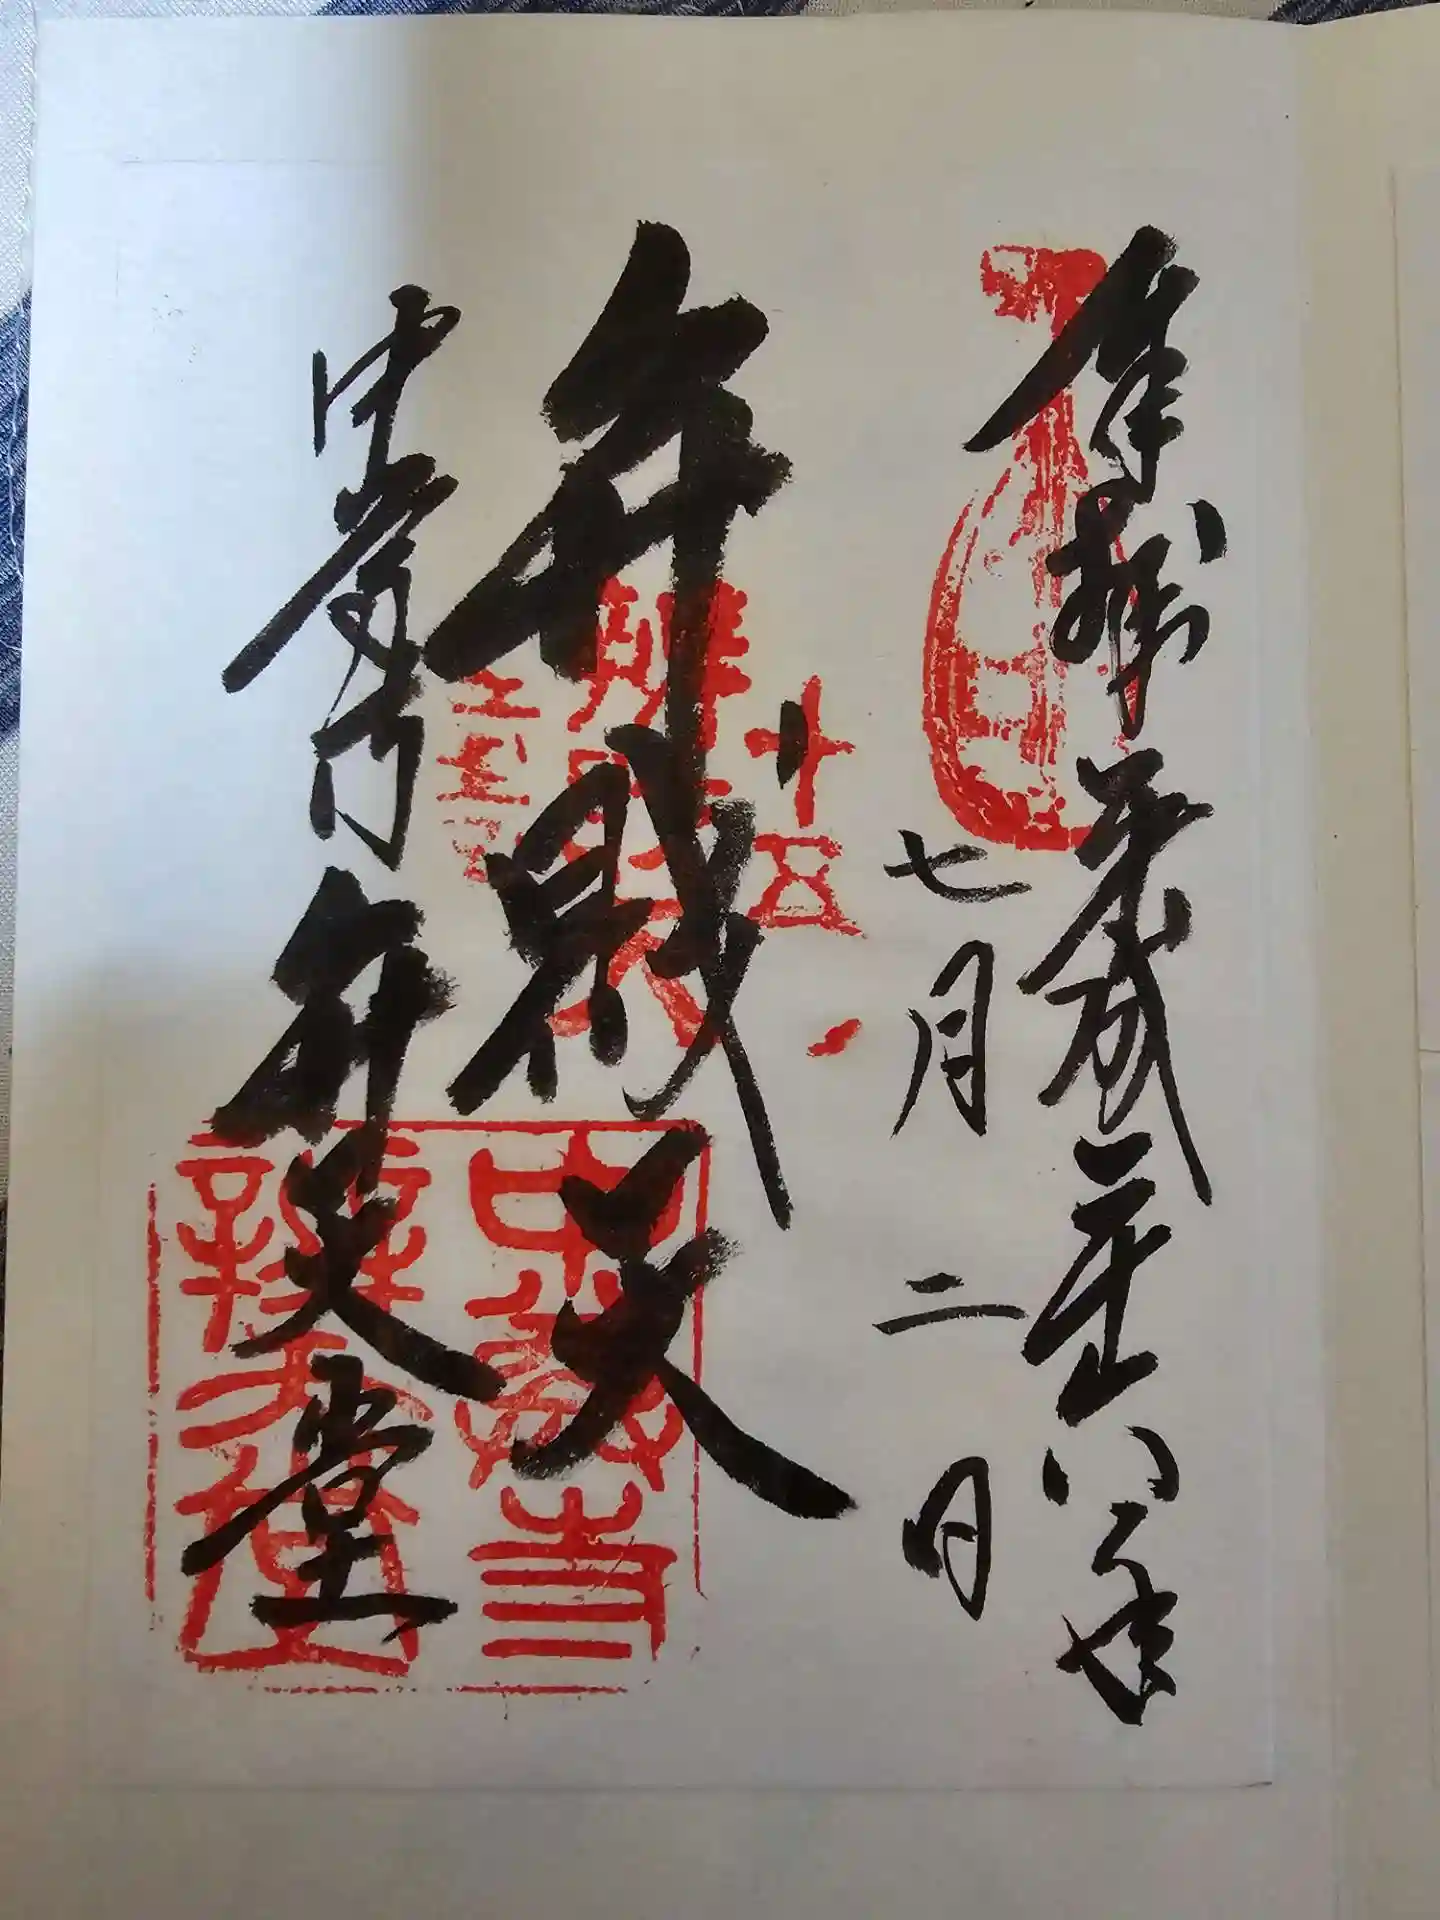 奉拝 平成二十八年
七月二日
十五
弁財天
辨財天
中尊寺 弁天堂
中尊寺
辨天堂